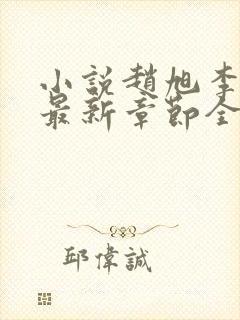 小説趙旭李
最新章節全
邱偉誠